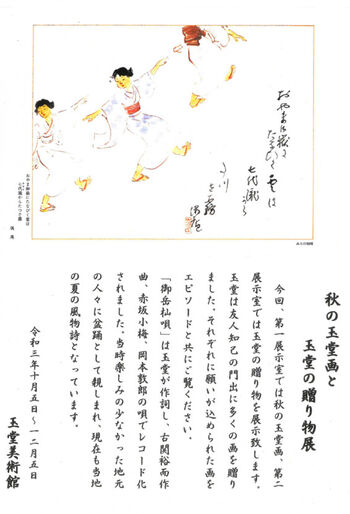 おやま御嶽に
たなびく雲は
七代瀧から
たつ
を霧
偶庵
おやま御嶽にたなびく雲は
七代瀧からたつさ霧
秋の玉堂画と
玉堂の贈り物展
今回、第一展示室では秋の玉堂画、第二
展示室では玉堂の贈り物を展示致します。
玉堂は友人知己の門出に多くの画を贈り
ました。それぞれに願いが込められた画を
エピソードと共にご覧ください。
「御岳杣唄」は玉堂が作詞し、古関裕而作
曲、赤坂小梅、岡本敦郎の唄でレコード化
されました。当時楽しみの少なかった地元
の人々に盆踊として親しまれ、現在も当地
の夏の風物詩となっています。
令和三年十月五日～一二月五日
玉堂美術館